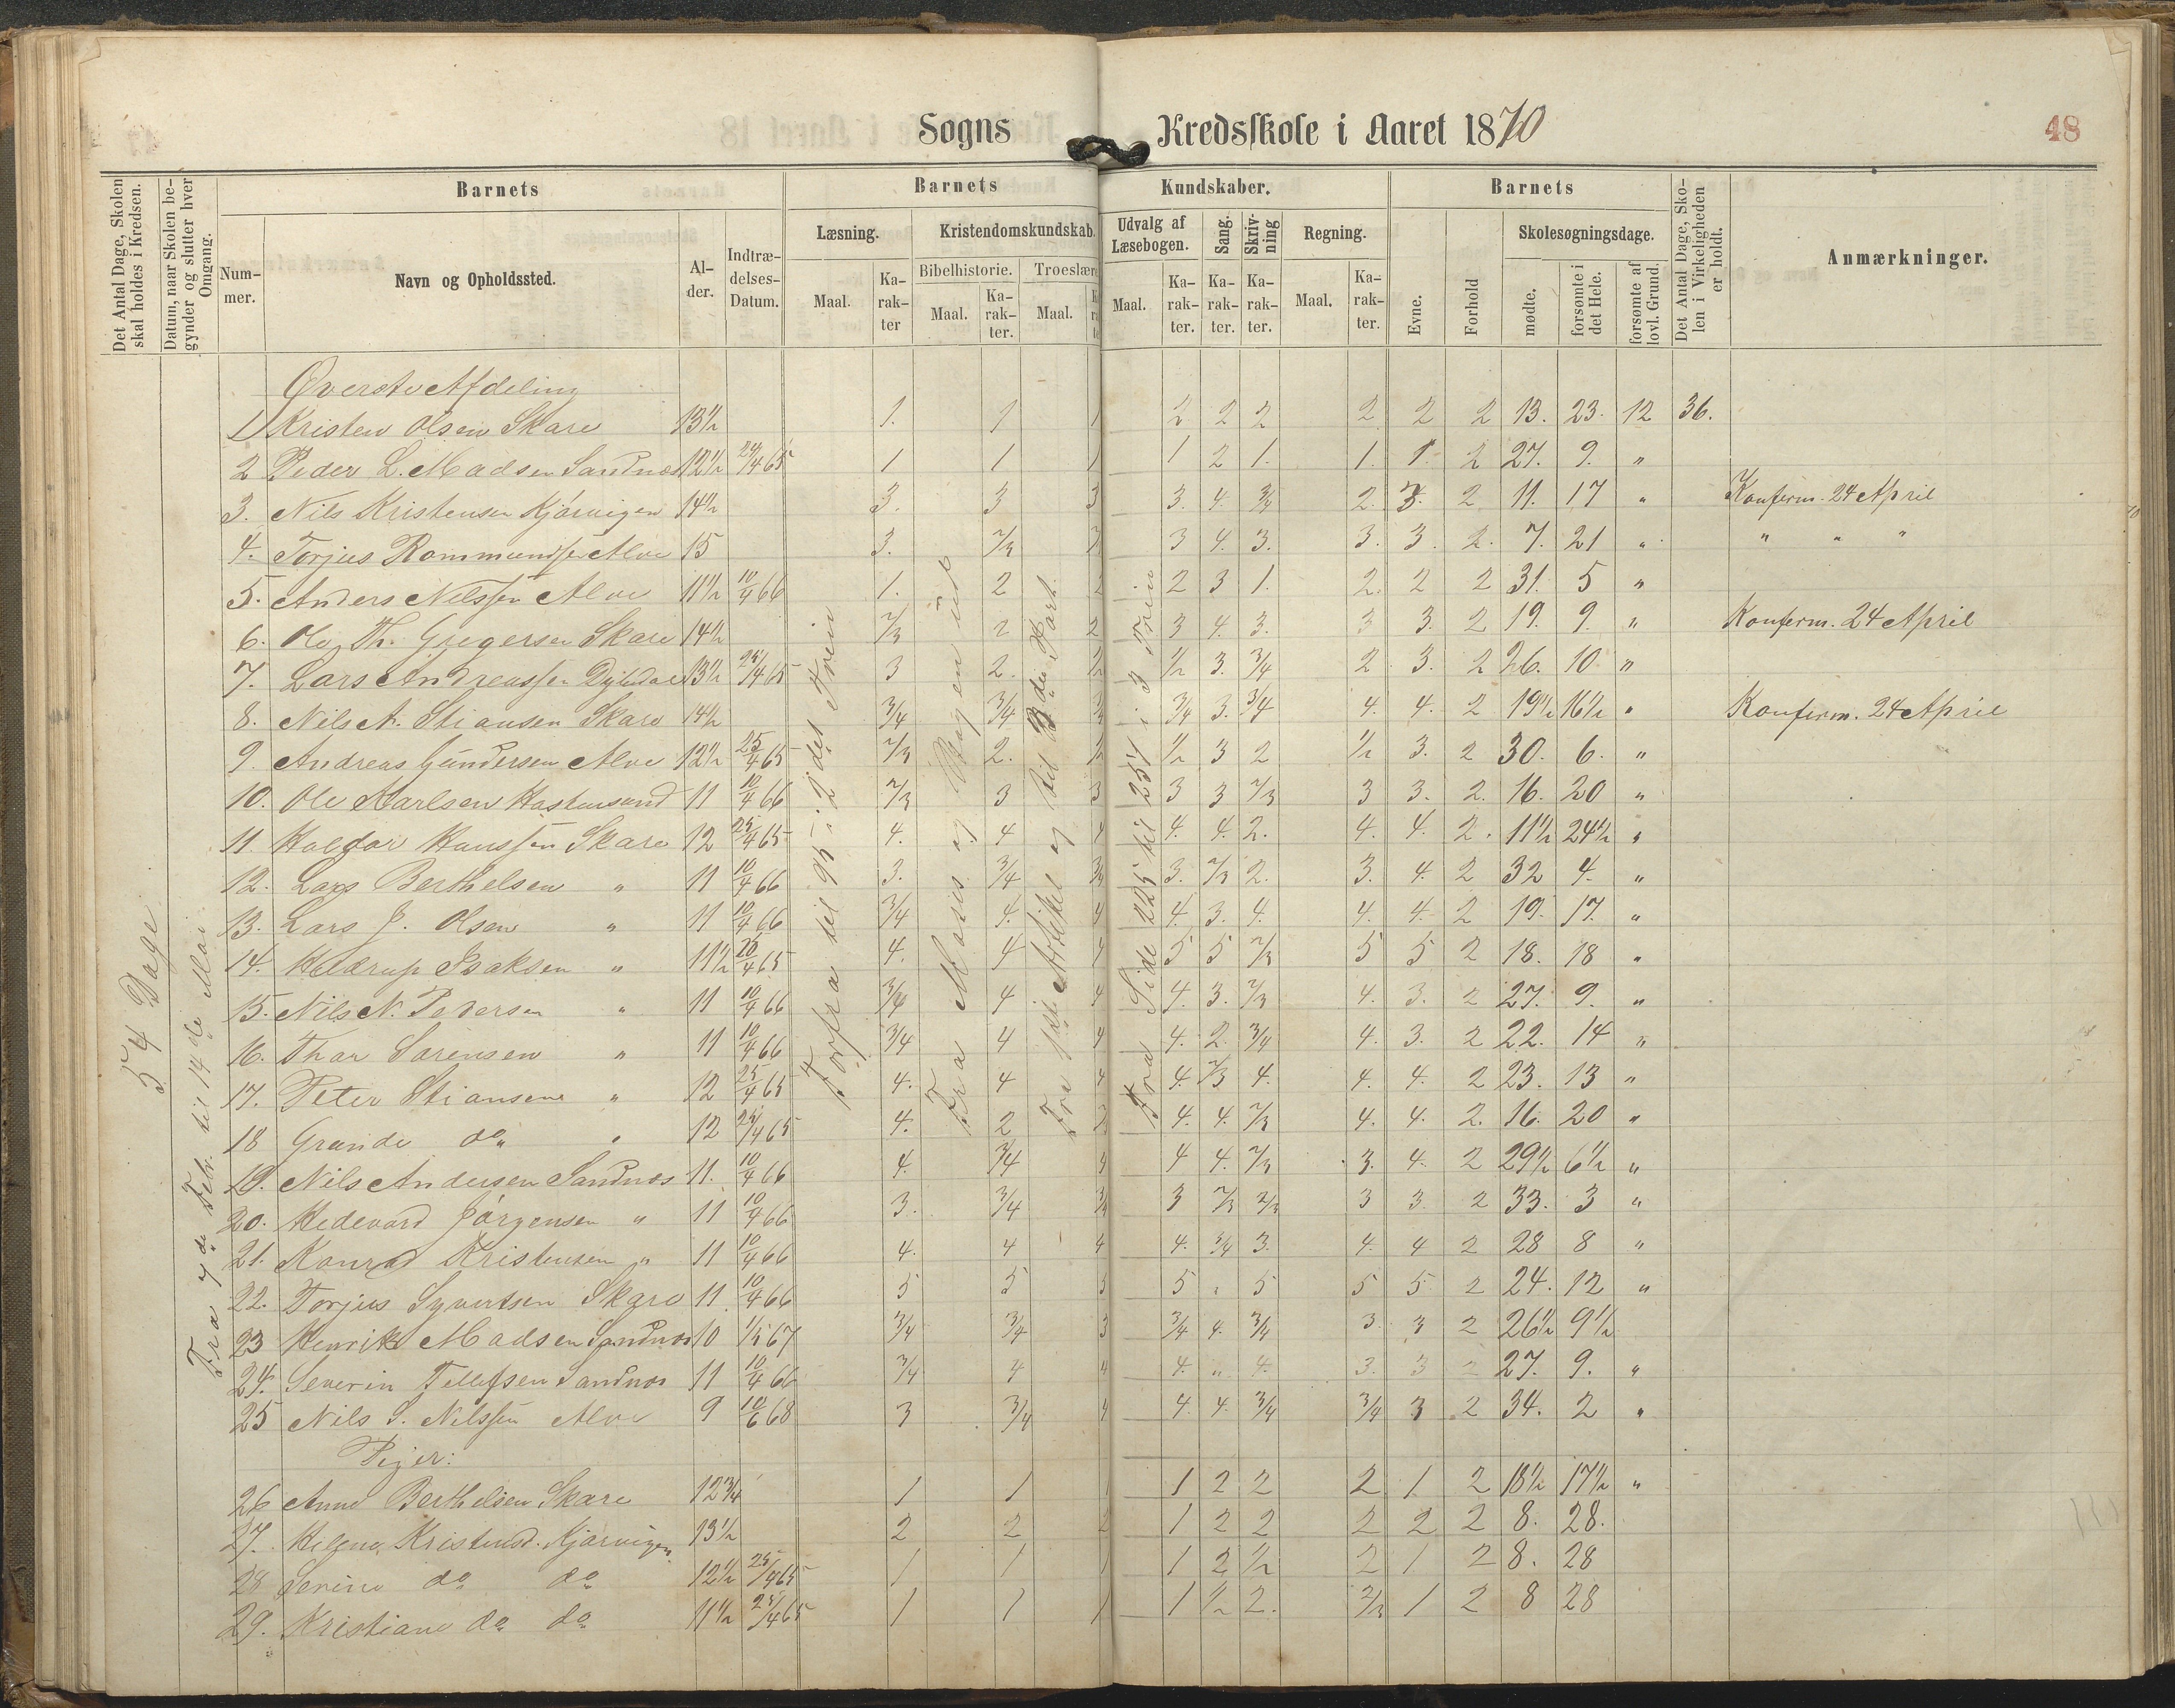 Sogns Kredsskole i Aaret 1870
48
Det Antal Dage, Skolen skal holdes i Kredsen.
Datum, naar Skolen begynder og slutter hver Omgang.
Barnets
Nummer.
Navn og Opholdssted.
Alder.
Indtrædelses-Datum.
Barnets Kundskaber.
Læsning.
Maal.
Karakter
Kristendomskundskab.
Bibelhistorie.
Maal.
Karakter.
Troeslære
Maal.
Udvalg af Læsebogen.
Maal.
Karakter.
Sang.
Karakter.
Skrivning
Karakter.
Regning.
Maal.
Karakter.
Barnets
Evne.
Forhold
Skolesøgningsdage.
mødte.
forsømte i det Hele.
forsømte af lovl. Grund.
Det Antal Dage, Skolen i Virkeligheden er holdt.
Anmærkninger.
54 Dage
Fra 7de Febr. til 14de Mai
Forfra til 95 i 2det Trin
Fra Moses og Bogen ud
Fra 1ste Artikel og til B de Part
Fra Side 225 til 257 i 3 Trin
Øverste Afdeling
1 Kristen Olsen Skare 13½ 1. 1 1 2 2 2 2 2 2 13. 23. 12 36.
2 Peder L. Madsen Sandnæs 12½ 25/4 65 1 1 1 1 2 1. 1. 1. 2 27. 9. "
3. Nils Kristensen Kjørvigen 14½ 3. 3 3 3. 4. 3/4 2. 3. 2 11. 17 " Konferm. 24 April
4. Torjus Rommundsen Alve 15 3. 2/3 3 4. 3. 3. 3. 2. 7. 21 " " " "
5. Anders Nilssen Alve 11½ 10/4 66 1. 2 2 2 3 1. 2. 2 2 31. 5 "
6. Ole Th. Gregersen Skare 14½ 2/3 2 2 3 4. 3. 3 3. 2 19. 9. " Konferm. 24 April
7. Lars Andreassen 13½ 25/4 65 3 2. ½ ½ 3. 3/4 2 3. 2 26. 10 "
8. Nils A. Stiansen Skare 14½ 3/4 3/4 3/4 3/4 3. 3/4 4. 4. 2 19½ 16½ " Konferm. 24 April
9. Andreas Gundersen Alve 12½ 25/4 65 2/3 2. ½ ½ 3 2 ½ 3. 2 30. 6. "
10. Ole Karlsen Hastensund 11 10/4 66 2/3 3 3 3 3 2/3 3 3. 2. 16. 20 "
11. Haldor Hanssen Skare 12 25/4 65 4. 4 4 4. 4. 2. 4. 4. 2. 11½ 24½ "
12. Lars Berthelsen " 11 10/4 66 3. 3/4 3/4 3. 2/3 2. 3. 4. 2 32 4. "
13. Lars J. Olsen " 11 10/4 66 3/4 4. 4 4. 3. 4. 4. 4. 2 19. 17. "
14. Keldrup Isaksen " 11½ 25/4 65 4. 4 4 5 5 2/3 5 5 2 18. 18 "
15. Nils N. Pedersen " 11 10/4 66 3/4 4 4 4. 3. 2/3 4. 3. 2 27. 9. "
16. Thor Sørensen " 11 10/4 66 3/4 4 4 4. 2. 3/4 4. 3. 2 22. 14 "
17. Peter Stiansen " 12 25/4 65 4. 4 4 4. 2/3 4. 4. 4. 2 23. 13 "
18 Grunde do " 12 25/4 65 4. 2 2 4. 4. 2/3 4. 4. 2. 16. 20 "
19. Nils Andersen Sandnæs 11. 10/4 66 4. 3/4 4 4 4. 2/3 3. 4. 2 29½ 6½ "
20. Hedevard Jørgensen " 11 10/4 66 3. 3/4 3/4 3 2/3 2/3 3 3. 2 33. 3 "
21. Konrad Kristensen " 11 10/4 66 4. 4 4 4. 3/4 3. 4. 4 2 28 8 "
22. Torjus Syvertsen Skare 11 10/4 66 5 5 5 5 " 5 5 5 2 24. 12 "
23 Henrik Madsen Sandnæs 10 1/5 67 3/4 3/4 3 3/4 4. 3/4 3. 3 2 26½ 9½
24. Severin Tellefsen Sandnæs 11 10/4 66 3/4 4 4 4. " 4. 3. 3 2 27. 9. "
25 Nils S. Nilssen Alve 9 10/6 68 3 3/4 4 4. 4. 3/4 3/4 3 2 34. 2 "
Piger:
26 Anne Berthelsen Skare 12¾ 1 1 1 1 2 2 2 1 2 18½ 17½ "
27. Helene Kristensd. Kjørvigen 13½ 2 2 2 1 2 2 2 2 2 8. 28.
28 Serine do do 12½ 25/4 65 1 1 1 1 2 ½ 2 1 2 8. 28
29. Kristiane do do 11½ 25/4 65 1 1 1 1 ½ 2. 2/3 1 2 8 28